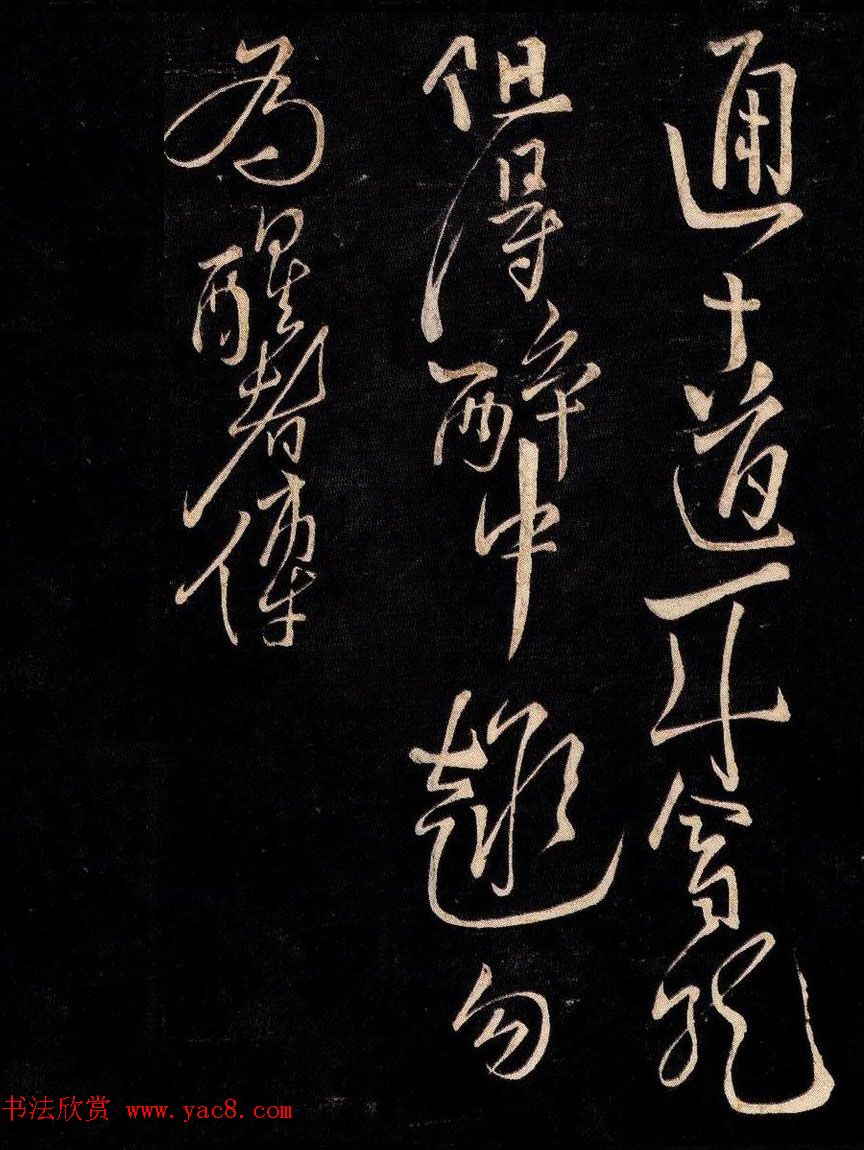 通大道一斗合自然
但得醉中趣勿
為醒者傳
书法欣赏 www.yac8.com